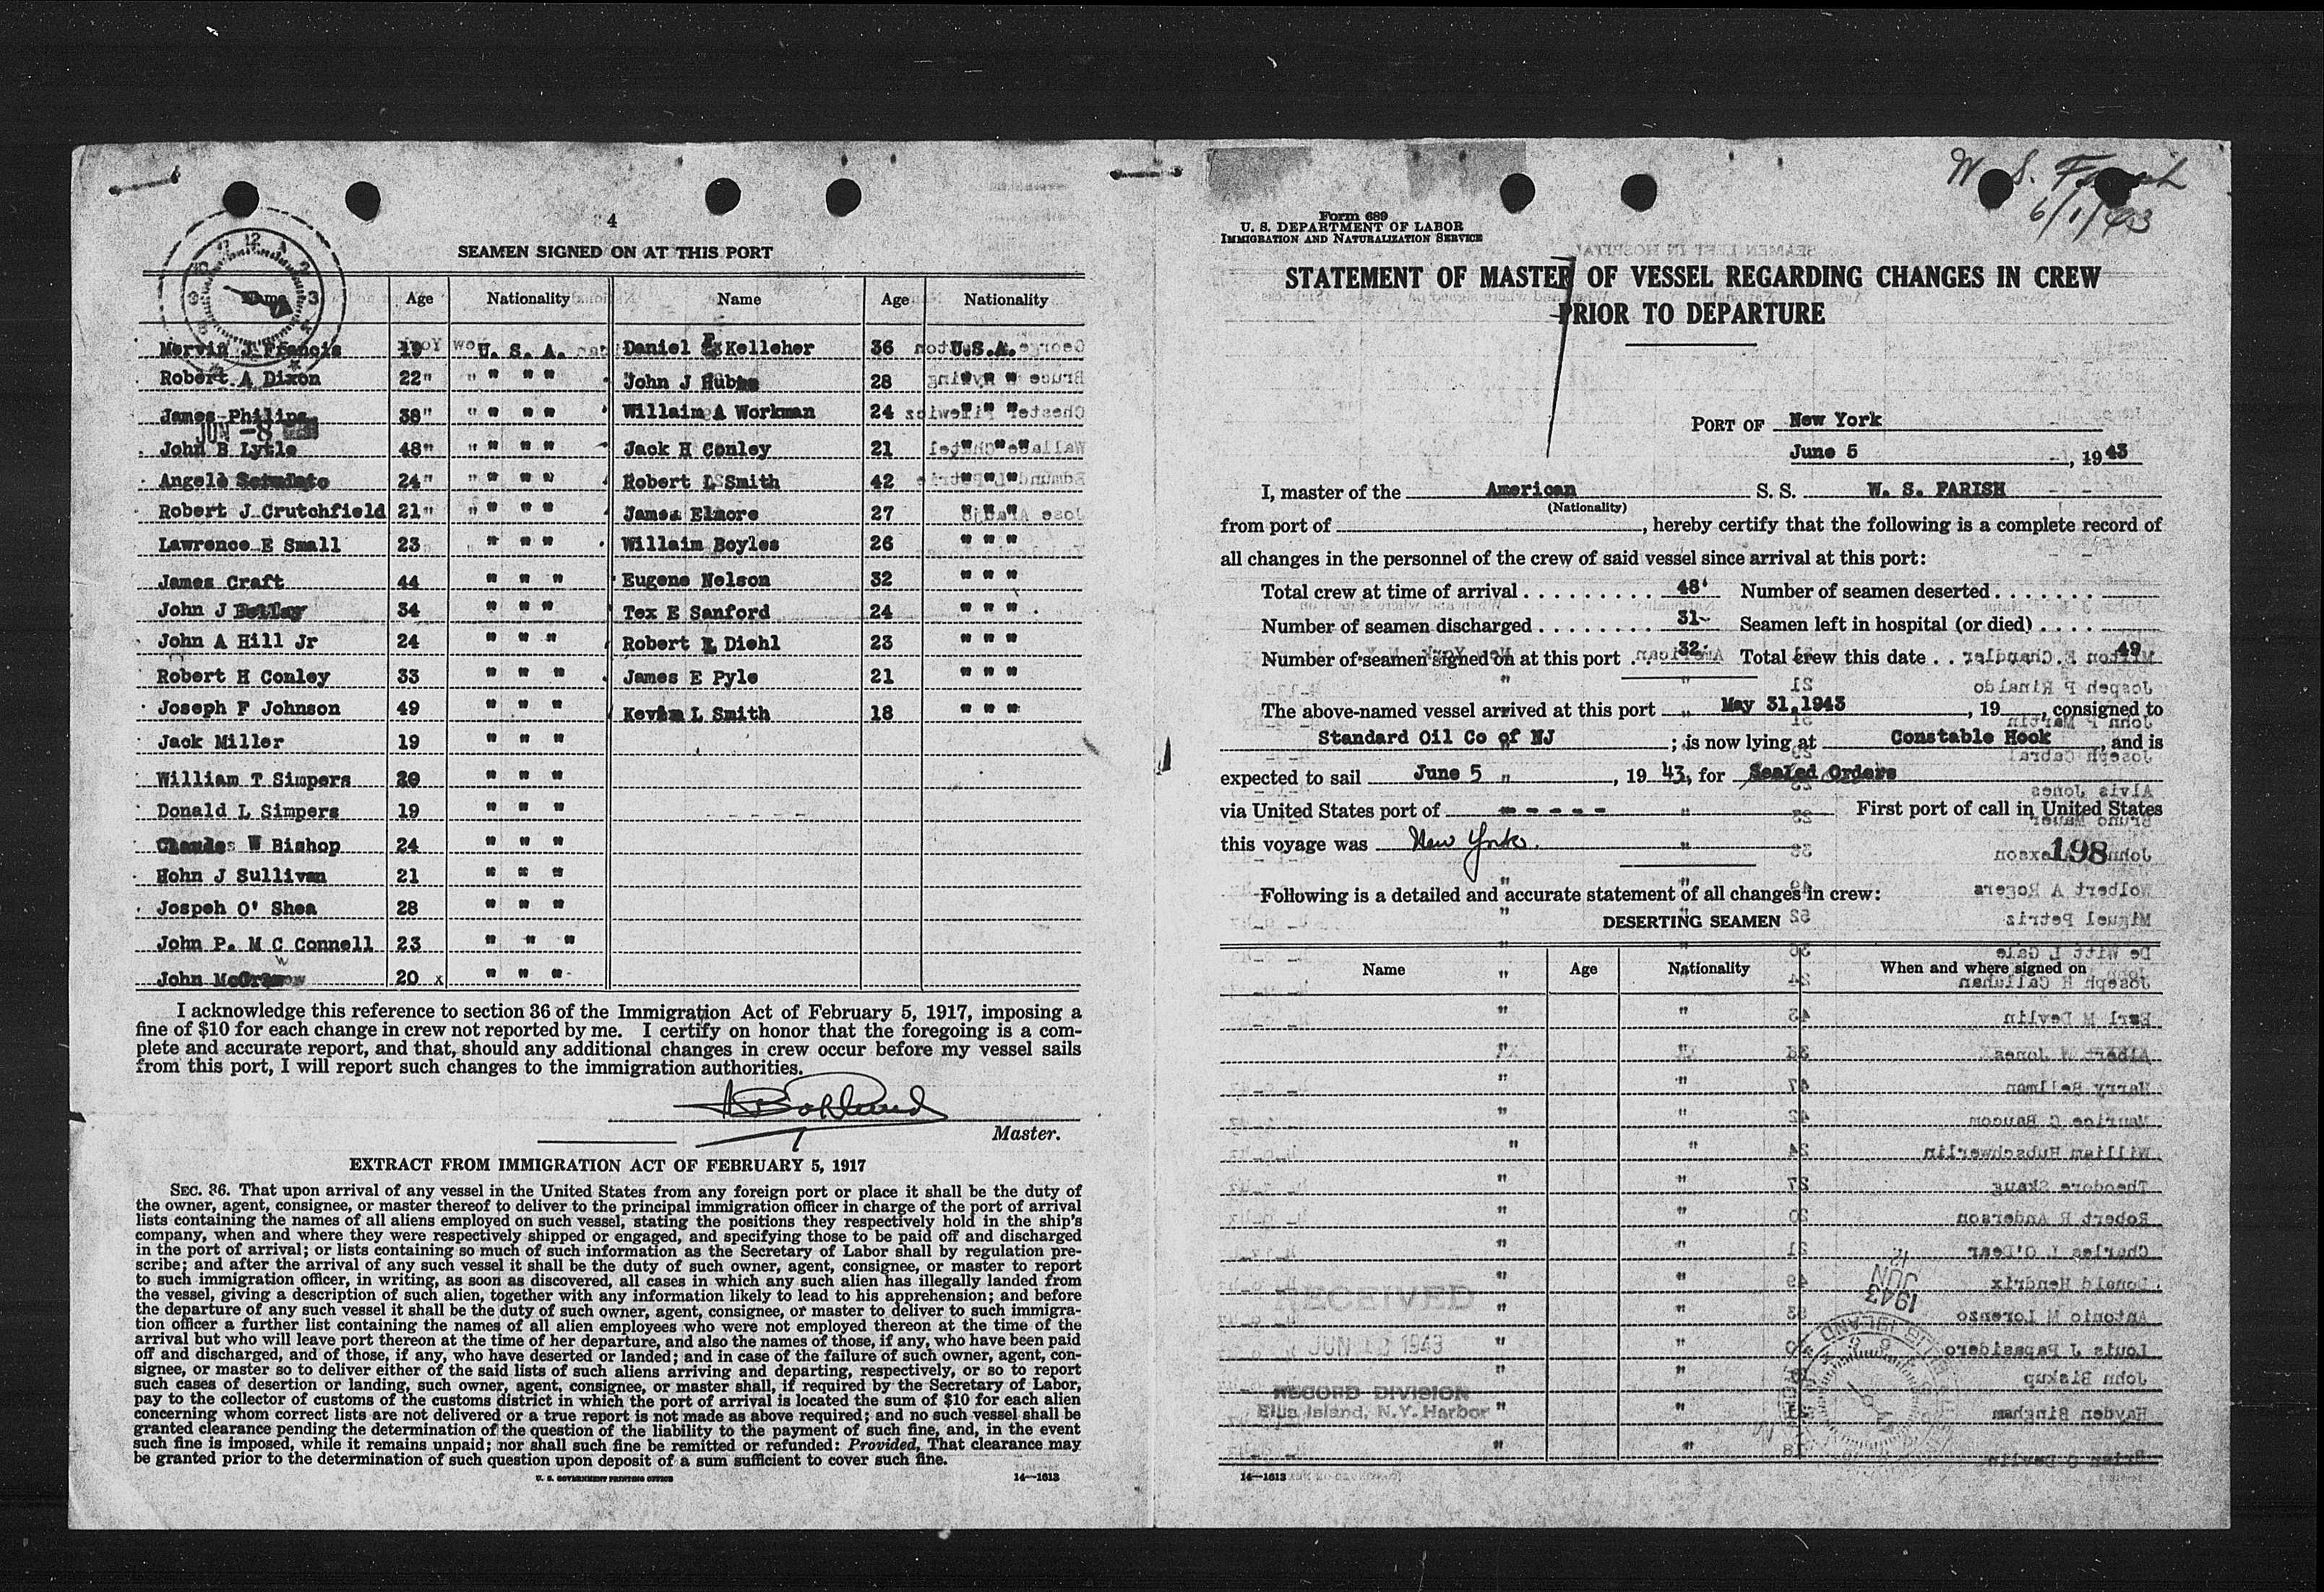 4
SEAMEN SIGNED ON AT THIS PORT
Name Age Nationality Name Age Nationality
Mervin J Francis 19 U. S. A. Daniel F Kelleher 36 U.S.A.
Robert A Dixon 22 " " " John J 28 " " "
James Philips 38 " " " Willaim A Workman 24 " " "
JUN -8
John B Lytle 48 " " " Jack H Conley 21 " " "
Angelo 24 " " " Robert L Smith 42 " " "
Robert J Crutchfield 21 " " " James Elmore 27 " " "
Lawrence E Small 23 " " " Willaim Boyles 26 " " "
James Craft 44 " " " Eugene Nelson 32 " " "
John J 34 " " " Tex E Sanford 24 " " "
John A Hill Jr 24 " " " Robert Diehl 23 " " "
Robert H Conley 33 " " " James E Pyle 21 " " "
Joseph F Johnson 49 " " " Kevin L Smith 18 " " "
Jack Miller 19 " " "
William T Simpers 20 " " "
Donald L Simpers 19 " " "
W Bishop 24 " " "
Hohn J Sullivan 21 " " "
Jospeh O' Shea 28 " " "
John P. M C Connell 23 " " "
John 20 x " " "
I acknowledge this reference to section 36 of the Immigration Act of February 5, 1917, imposing a
fine of $10 for each change in crew not reported by me. I certify on honor that the foregoing is a com-
plete and accurate report, and that, should any additional changes in crew occur before my vessel sails
from this port, I will report such changes to the immigration authorities.
Master.
EXTRACT FROM IMMIGRATION ACT OF FEBRUARY 5, 1917
SEC. 36. That upon arrival of any vessel in the United States from any foreign port or place it shall be the duty of
the owner, agent, consignee, or master thereof to deliver to the principal immigration officer in charge of the port of arrival
lists containing the names of all aliens employed on such vessel, stating the positions they respectively hold in the ship's
company, when and where they were respectively shipped or engaged, and specifying those to be paid off and discharged
in the port of arrival; or lists containing so much of such information as the Secretary of Labor shall by regulation pre-
scribe; and after the arrival of any such vessel it shall be the duty of such owner, agent, consignee, or master to report
to such immigration officer, in writing, as soon as discovered, all cases in which any such alien has illegally landed from
the vessel, giving a description of such alien, together with any information likely to lead to his apprehension; and before
the departure of any such vessel it shall be the duty of such owner, agent, consignee, or master to deliver to such immigra-
tion officer a further list containing the names of all alien employees who were not employed thereon at the time of the
arrival but who will leave port thereon at the time of her departure, and also the names of those, if any, who have been paid
off and discharged, and of those, if any, who have deserted or landed; and in case of the failure of such owner, agent, con-
signee, or master so to deliver either of the said lists of such aliens arriving and departing, respectively, or so to report
such cases of desertion or landing, such owner, agent, consignee, or master shall, if required by the Secretary of Labor,
pay to the collector of customs of the customs district in which the port of arrival is located the sum of $10 for each alien
concerning whom correct lists are not delivered or a true report is not made as above required; and no such vessel shall be
granted clearance pending the determination of the question of the liability to the payment of such fine, and, in the event
such fine is imposed, while it remains unpaid; nor shall such fine be remitted or refunded: Provided, That clearance may
be granted prior to the determination of such question upon deposit of a sum sufficient to cover such fine.
U. S. GOVERNMENT PRINTING OFFICE 14—1613
W. S. Farish
6/1/43
Form 689
U. S. DEPARTMENT OF LABOR
IMMIGRATION AND NATURALIZATION SERVICE
STATEMENT OF MASTER OF VESSEL REGARDING CHANGES IN CREW
PRIOR TO DEPARTURE
PORT OF New York
June 5, 1943
I, master of the American S. S. W. S. FARISH
(Nationality)
from port of , hereby certify that the following is a complete record of
all changes in the personnel of the crew of said vessel since arrival at this port:
Total crew at time of arrival 48 Number of seamen deserted
Number of seamen discharged 31 Seamen left in hospital (or died)
Number of seamen signed on at this port 32 Total crew this date 49
The above-named vessel arrived at this port May 31,1943, 19 , consigned to
Standard Oil Co of NJ; is now lying at Constable Hook, and is
expected to sail June 5, 1943, for Sealed Orders
via United States port of - - - - - First port of call in United States
this voyage was New York.
198
Following is a detailed and accurate statement of all changes in crew:
DESERTING SEAMEN
Name Age Nationality When and where signed on
RECEIVED
JUN 12 1943
RECORD DIVISION
Ellis Island, N.Y. Harbor
JUN
1943
14—1613